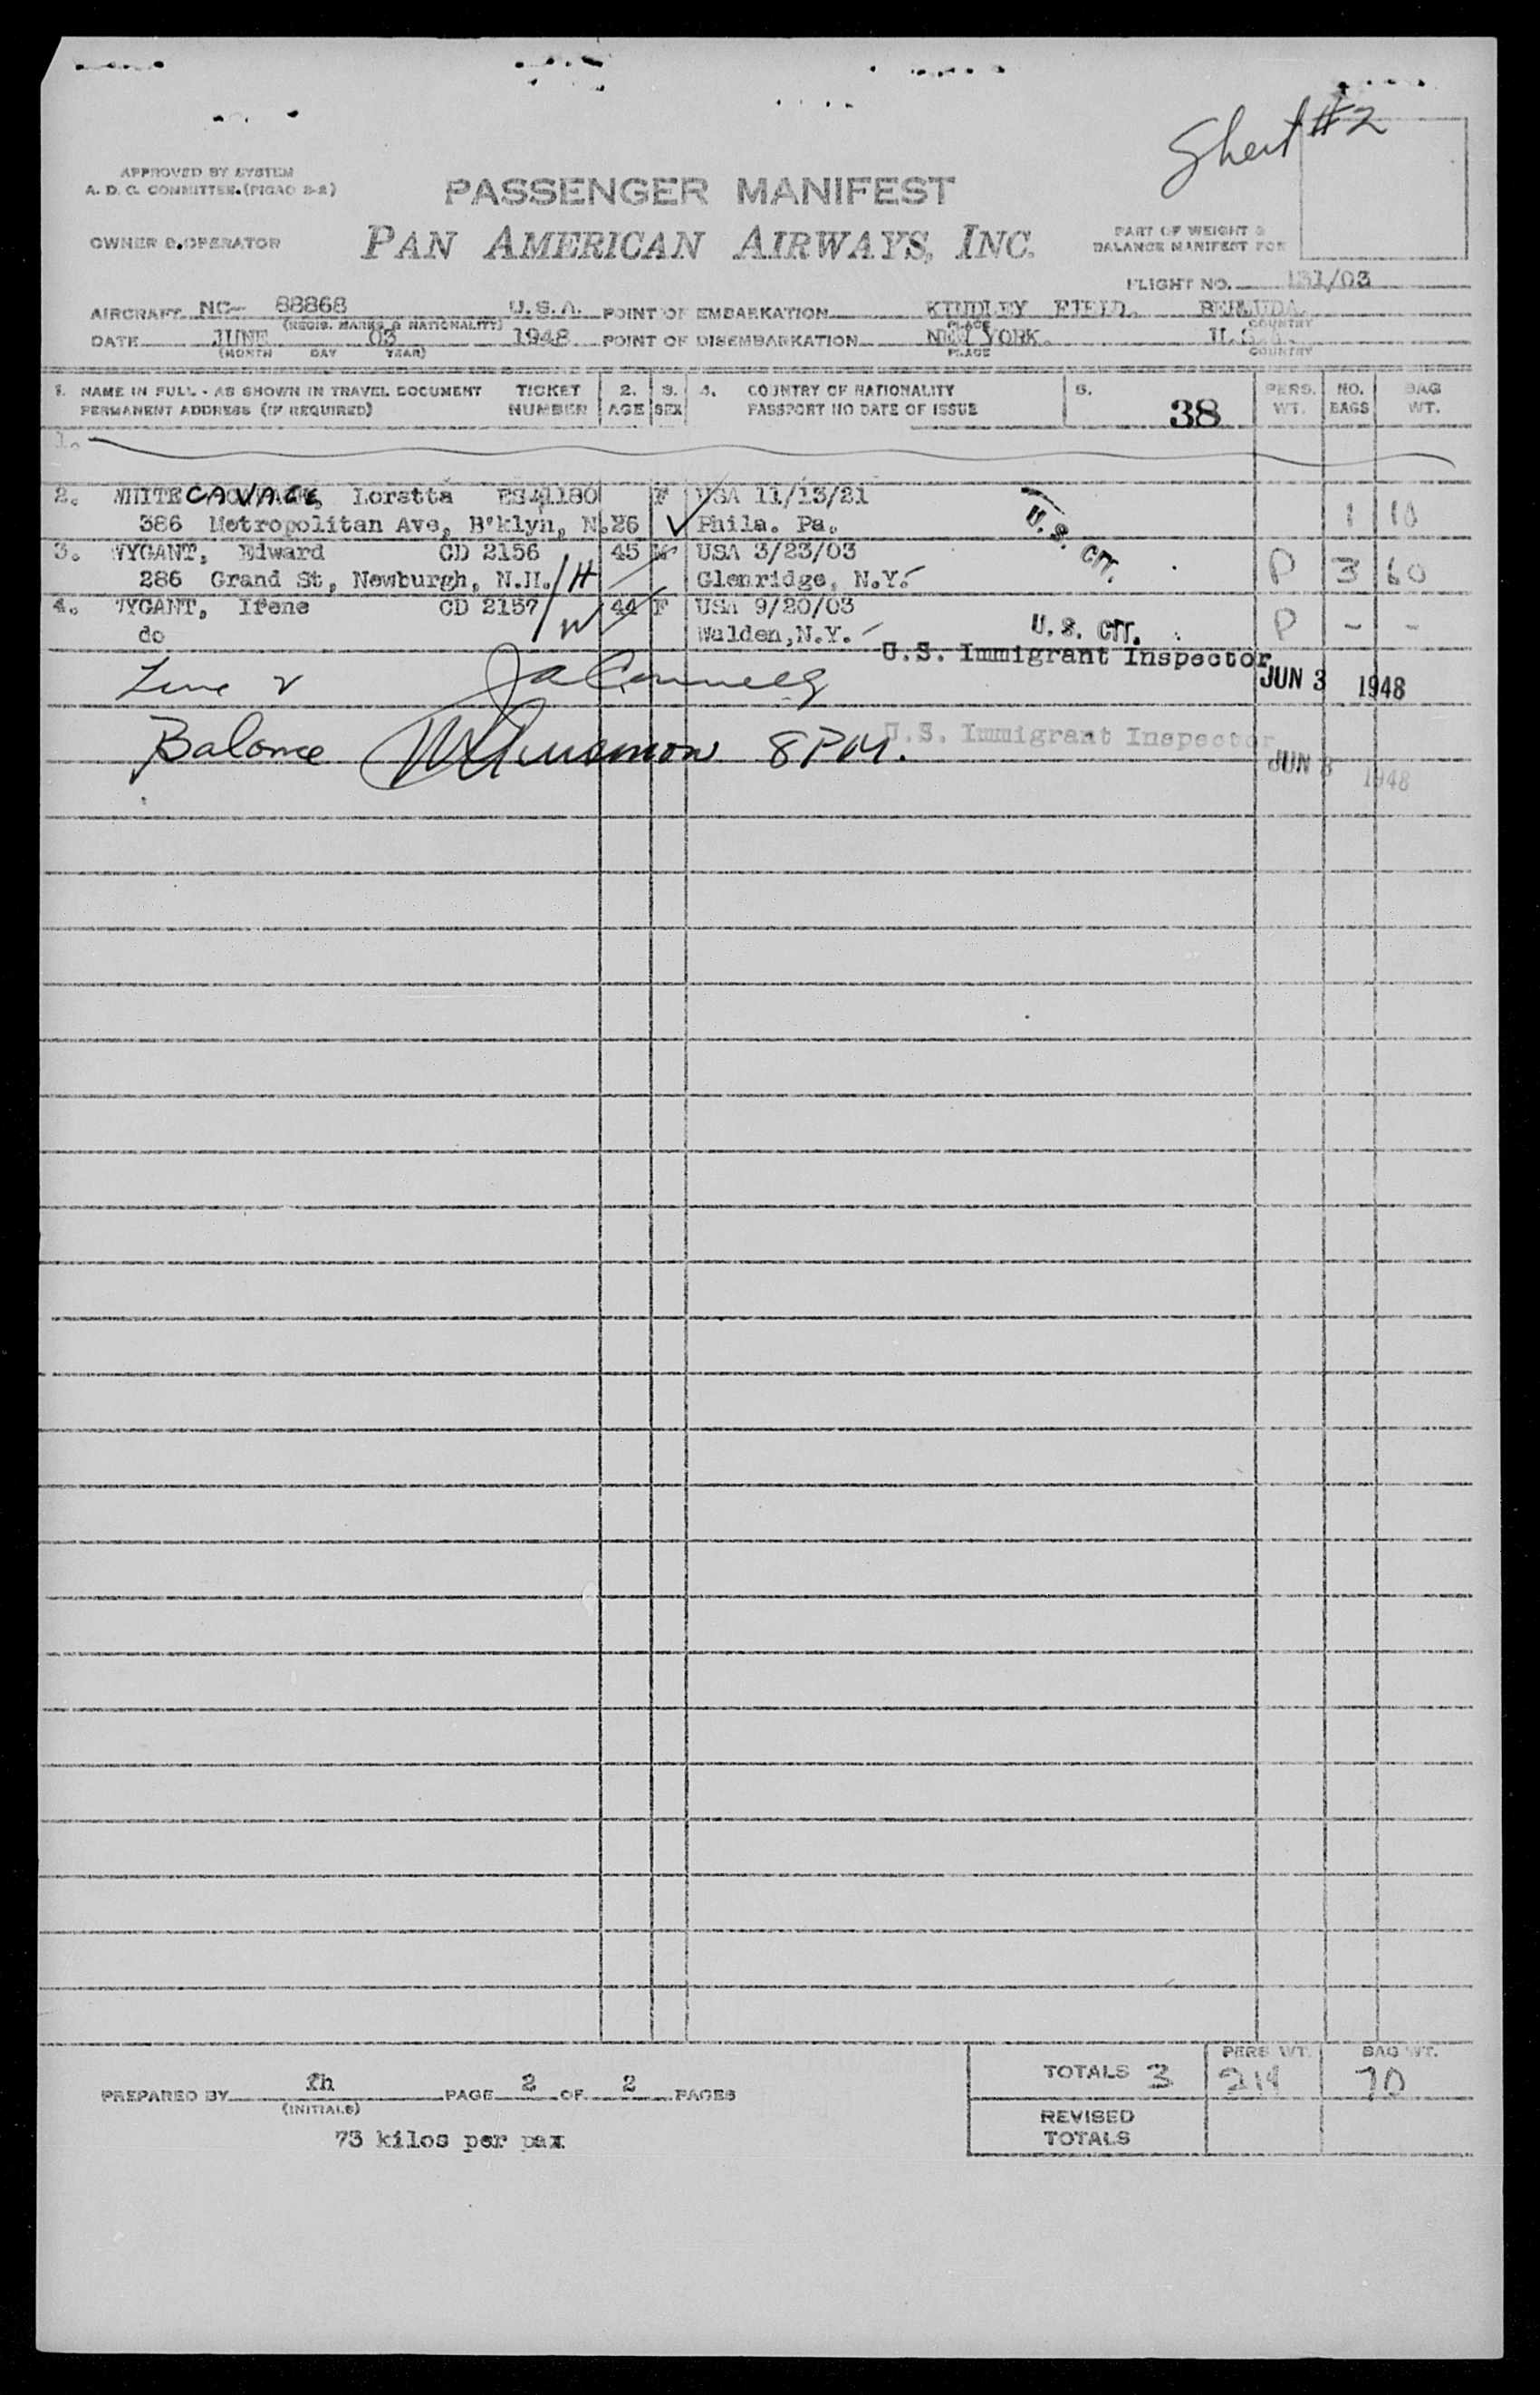 Sheet #2
APPROVED BY SYSTEM
A. D. C. COMMITTEE. (PICAO S-2)
PASSENGER MANIFEST
OWNER & OPERATOR
PAN AMERICAN AIRWAYS, INC.
PART OF WEIGHT &
BALANCE MANIFEST FOR
FLIGHT NO. 131/03
AIRCRAFT NC- 88868 U.S.A. POINT OF EMBARKATION KINDLEY FIELD. BERMUDA.
(REGIS. MARKS & NATIONALITY) PLACE COUNTRY
DATE JUNE 03 1948 POINT OF DISEMBARKATION NEW YORK. U.S.A.
(MONTH DAY YEAR) PLACE COUNTRY
1. NAME IN FULL - AS SHOWN IN TRAVEL DOCUMENT TICKET 2. 3. 4. COUNTRY OF NATIONALITY 5. PERS. NO. BAG
PERMANENT ADDRESS (IF REQUIRED) NUMBER AGE SEX PASSPORT NO DATE OF ISSUE 38 WT. BAGS WT.
1.
2. WHITECAVAGE, Loretta 41180 F USA 11/13/21 1 10
386 Metropolitan Ave, B'klyn, N. 26 Phila. Pa. U.S. CIT.
3. WYGANT, Edward CD 2156 45 M USA 3/23/03 P 3 60
286 Grand St, Newburgh, N.H. H Glenridge, N.Y.
4. WYGANT, Irene CD 2157 44 F USA 9/20/03 P - -
do W Walden, N.Y. U.S. CIT.
U.S. Immigrant Inspector
Line 2 JUN 3 1948
Balance 8 PM. U.S. Immigrant Inspector
JUN 3 1948
PREPARED BY PAGE 2 OF 2 PAGES
(INITIALS)
73 kilos per pax
PERS WT. BAG WT.
TOTALS 3 219 70
REVISED
TOTALS